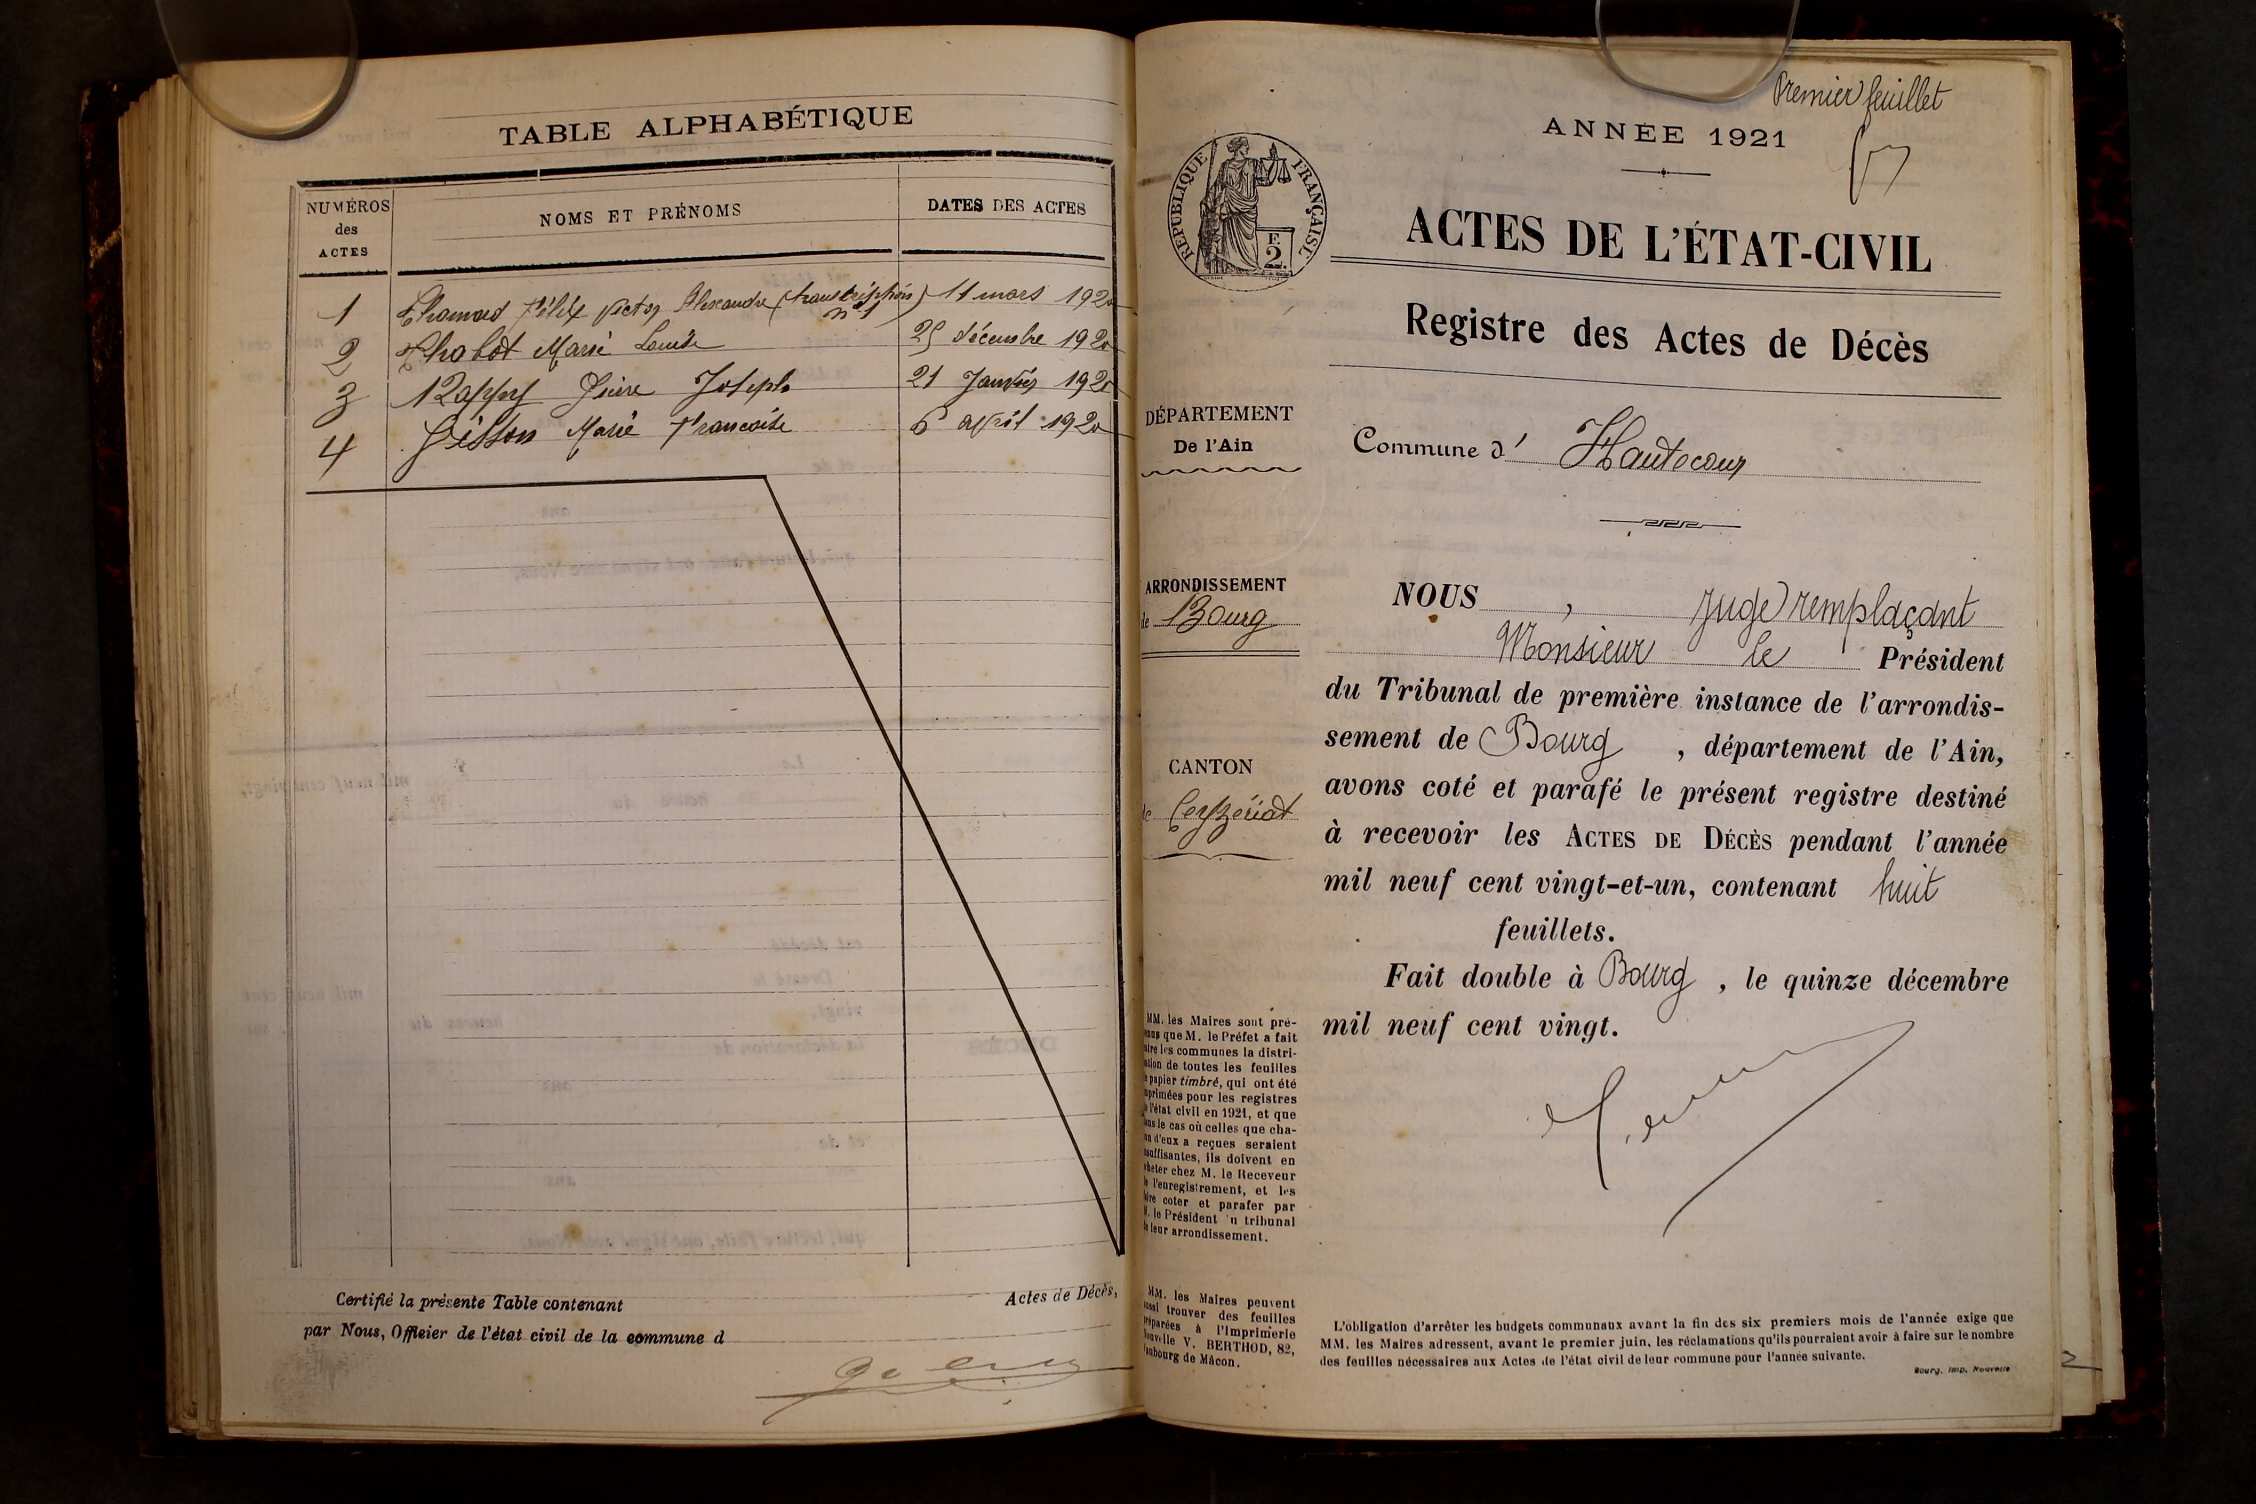 TABLE ALPHABÉTIQUE
NUMÉROS
des
ACTES
NOMS ET PRÉNOMS
DATES DES ACTES
1 Félix Victor Alexandre (transcription) 11 mars 1920
n° 1
2 Chabot Marie Louise 25 décembre 1920
3 Pierre Joseph 21 Janvier 1920
4 Marie Francoise 6 avril 1920
Certifié la présente Table contenant
Actes de Décès,
par Nous, Officier de l'état civil de la commune d
Premier feuillet
ANNÉE 1921
RÉPUBLIQUE FRANÇAISE
F.
2.
ACTES DE L'ÉTAT-CIVIL
Registre des Actes de Décès
DÉPARTEMENT
De l'Ain
Commune d' Hautecour
ARRONDISSEMENT
de Bourg
CANTON
de Ceyzériat
NOUS, Juge remplaçant
Monsieur le Président
du Tribunal de première instance de l'arrondis-
sement de Bourg, département de l'Ain,
avons coté et parafé le présent registre destiné
à recevoir les ACTES DE DÉCÈS pendant l'année
mil neuf cent vingt-et-un, contenant huit
feuillets.
Fait double à Bourg, le quinze décembre
mil neuf cent vingt.
MM. les Maires sont pré-
que M. le Préfet a fait
les communes la distri-
de toutes les feuilles
papier timbré, qui ont été
pour les registres
l'état civil en 1921, et que
le cas où celles que cha-
d'eux a reçues seraient
ils doivent en
chez M. le Receveur
l'enregistrement, et les
coter et parafer par
le Président du tribunal
leur arrondissement.
MM. les Maires peuvent
trouver des feuilles
à l'Imprimerie
V. BERTHOD, 82,
de Mâcon.
L'obligation d'arrêter les budgets communaux avant la fin des six premiers mois de l'année exige que
MM. les Maires adressent, avant le premier juin, les réclamations qu'ils pourraient avoir à faire sur le nombre
des feuilles nécessaires aux Actes de l'état civil de leur commune pour l'année suivante.
Bourg, Imp. Nouvelle